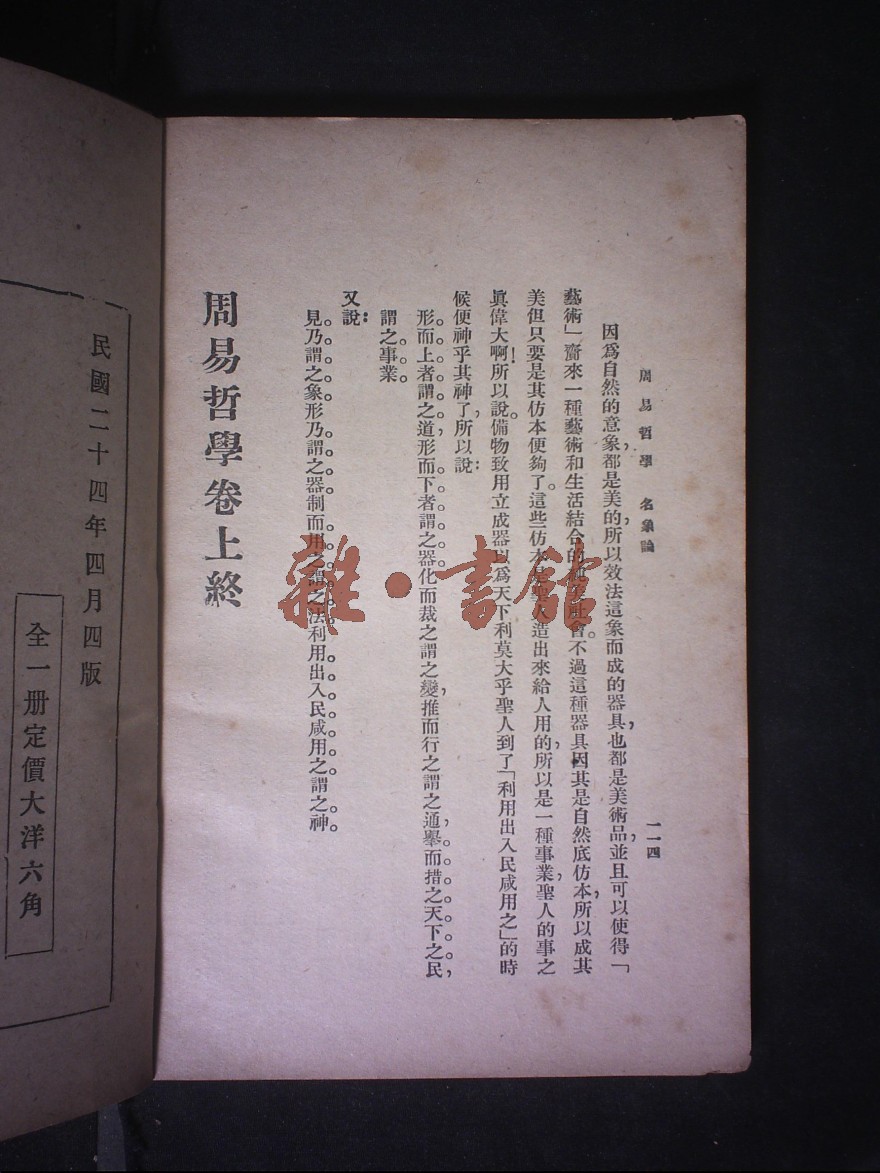 周易哲學 名象論
一一四
因爲自然的意象,都是美的,所以效法這象而成的器具,也都是美術品,並且可以使得「
藝術」齎來一種藝術和生活結合的社會。不過這種器具,因其是自然底仿本,所以成其
美但只要是其仿本便夠了。這些仿本是聖人造出來給人用的,所以是一種事業,聖人的事之
眞偉大啊!所以說。備物致用立成器以爲天下利莫大乎聖人到了「利用出入民咸用之」的時
候便神乎其神了,所以說:
形而上者謂之道形而下者謂之器化而裁之謂之變,推而行之謂之通,舉而措之天下之民,
謂之事業。
又說:
見乃謂之象形乃謂之器制而用之謂之法利用出入民咸用之謂之神。
周易哲學卷上終
雜·書館
民國二十四年四月四版
全一册定價大洋六角